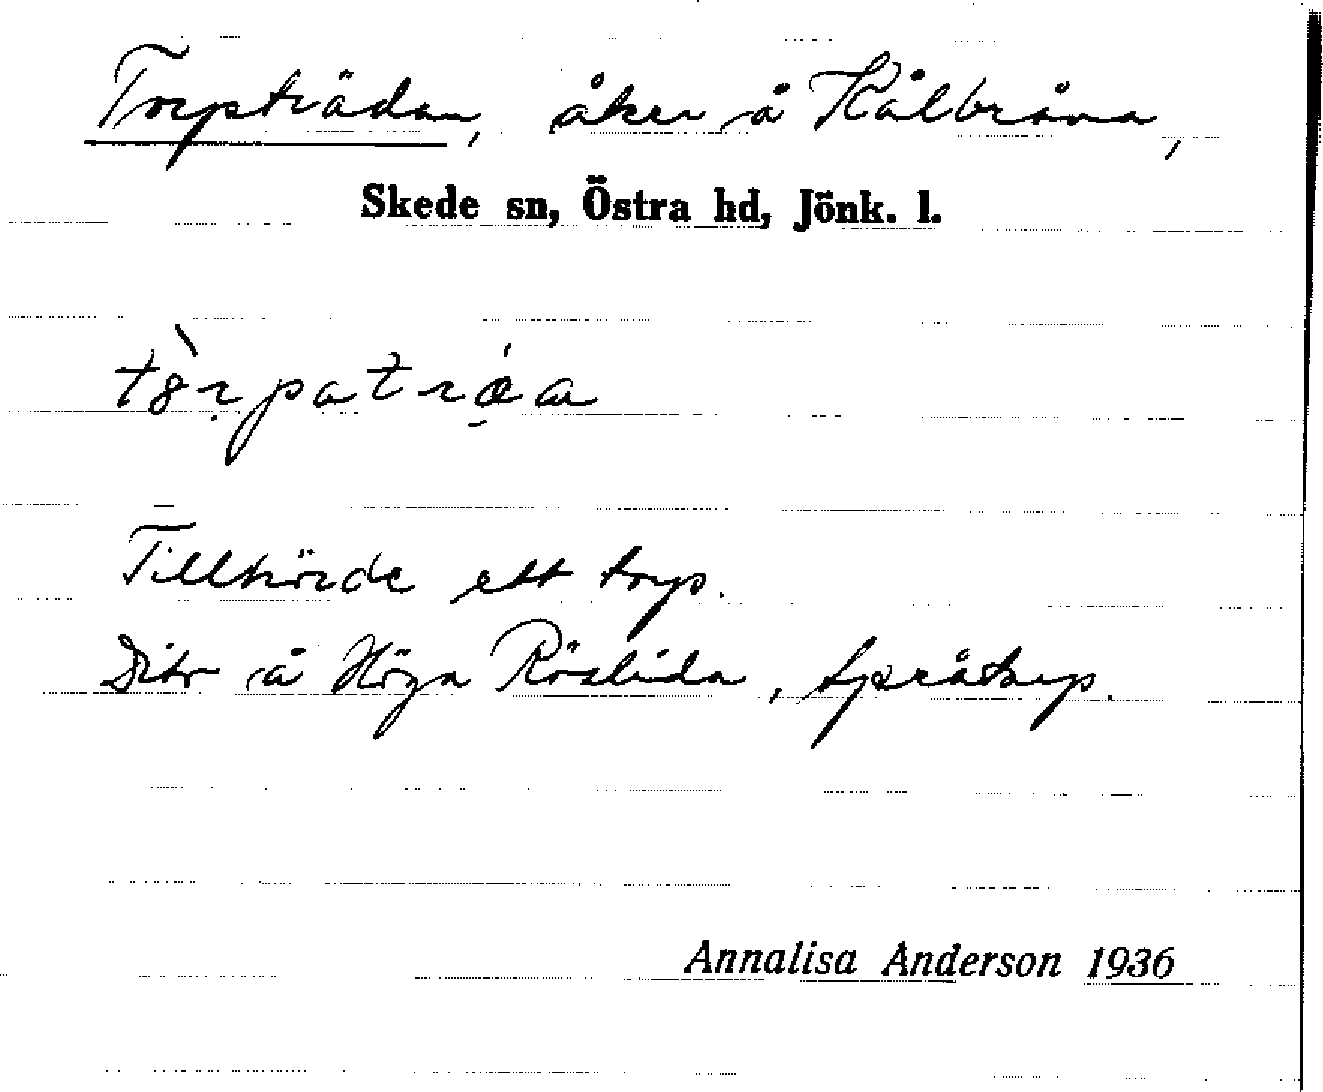 Torpträdan, åker å Kålbråna,
Skede sn, Östra hd, Jönk. l.
Tillhörde ett torp.
Dito å Höga Röslida,
Annalisa Anderson 1936